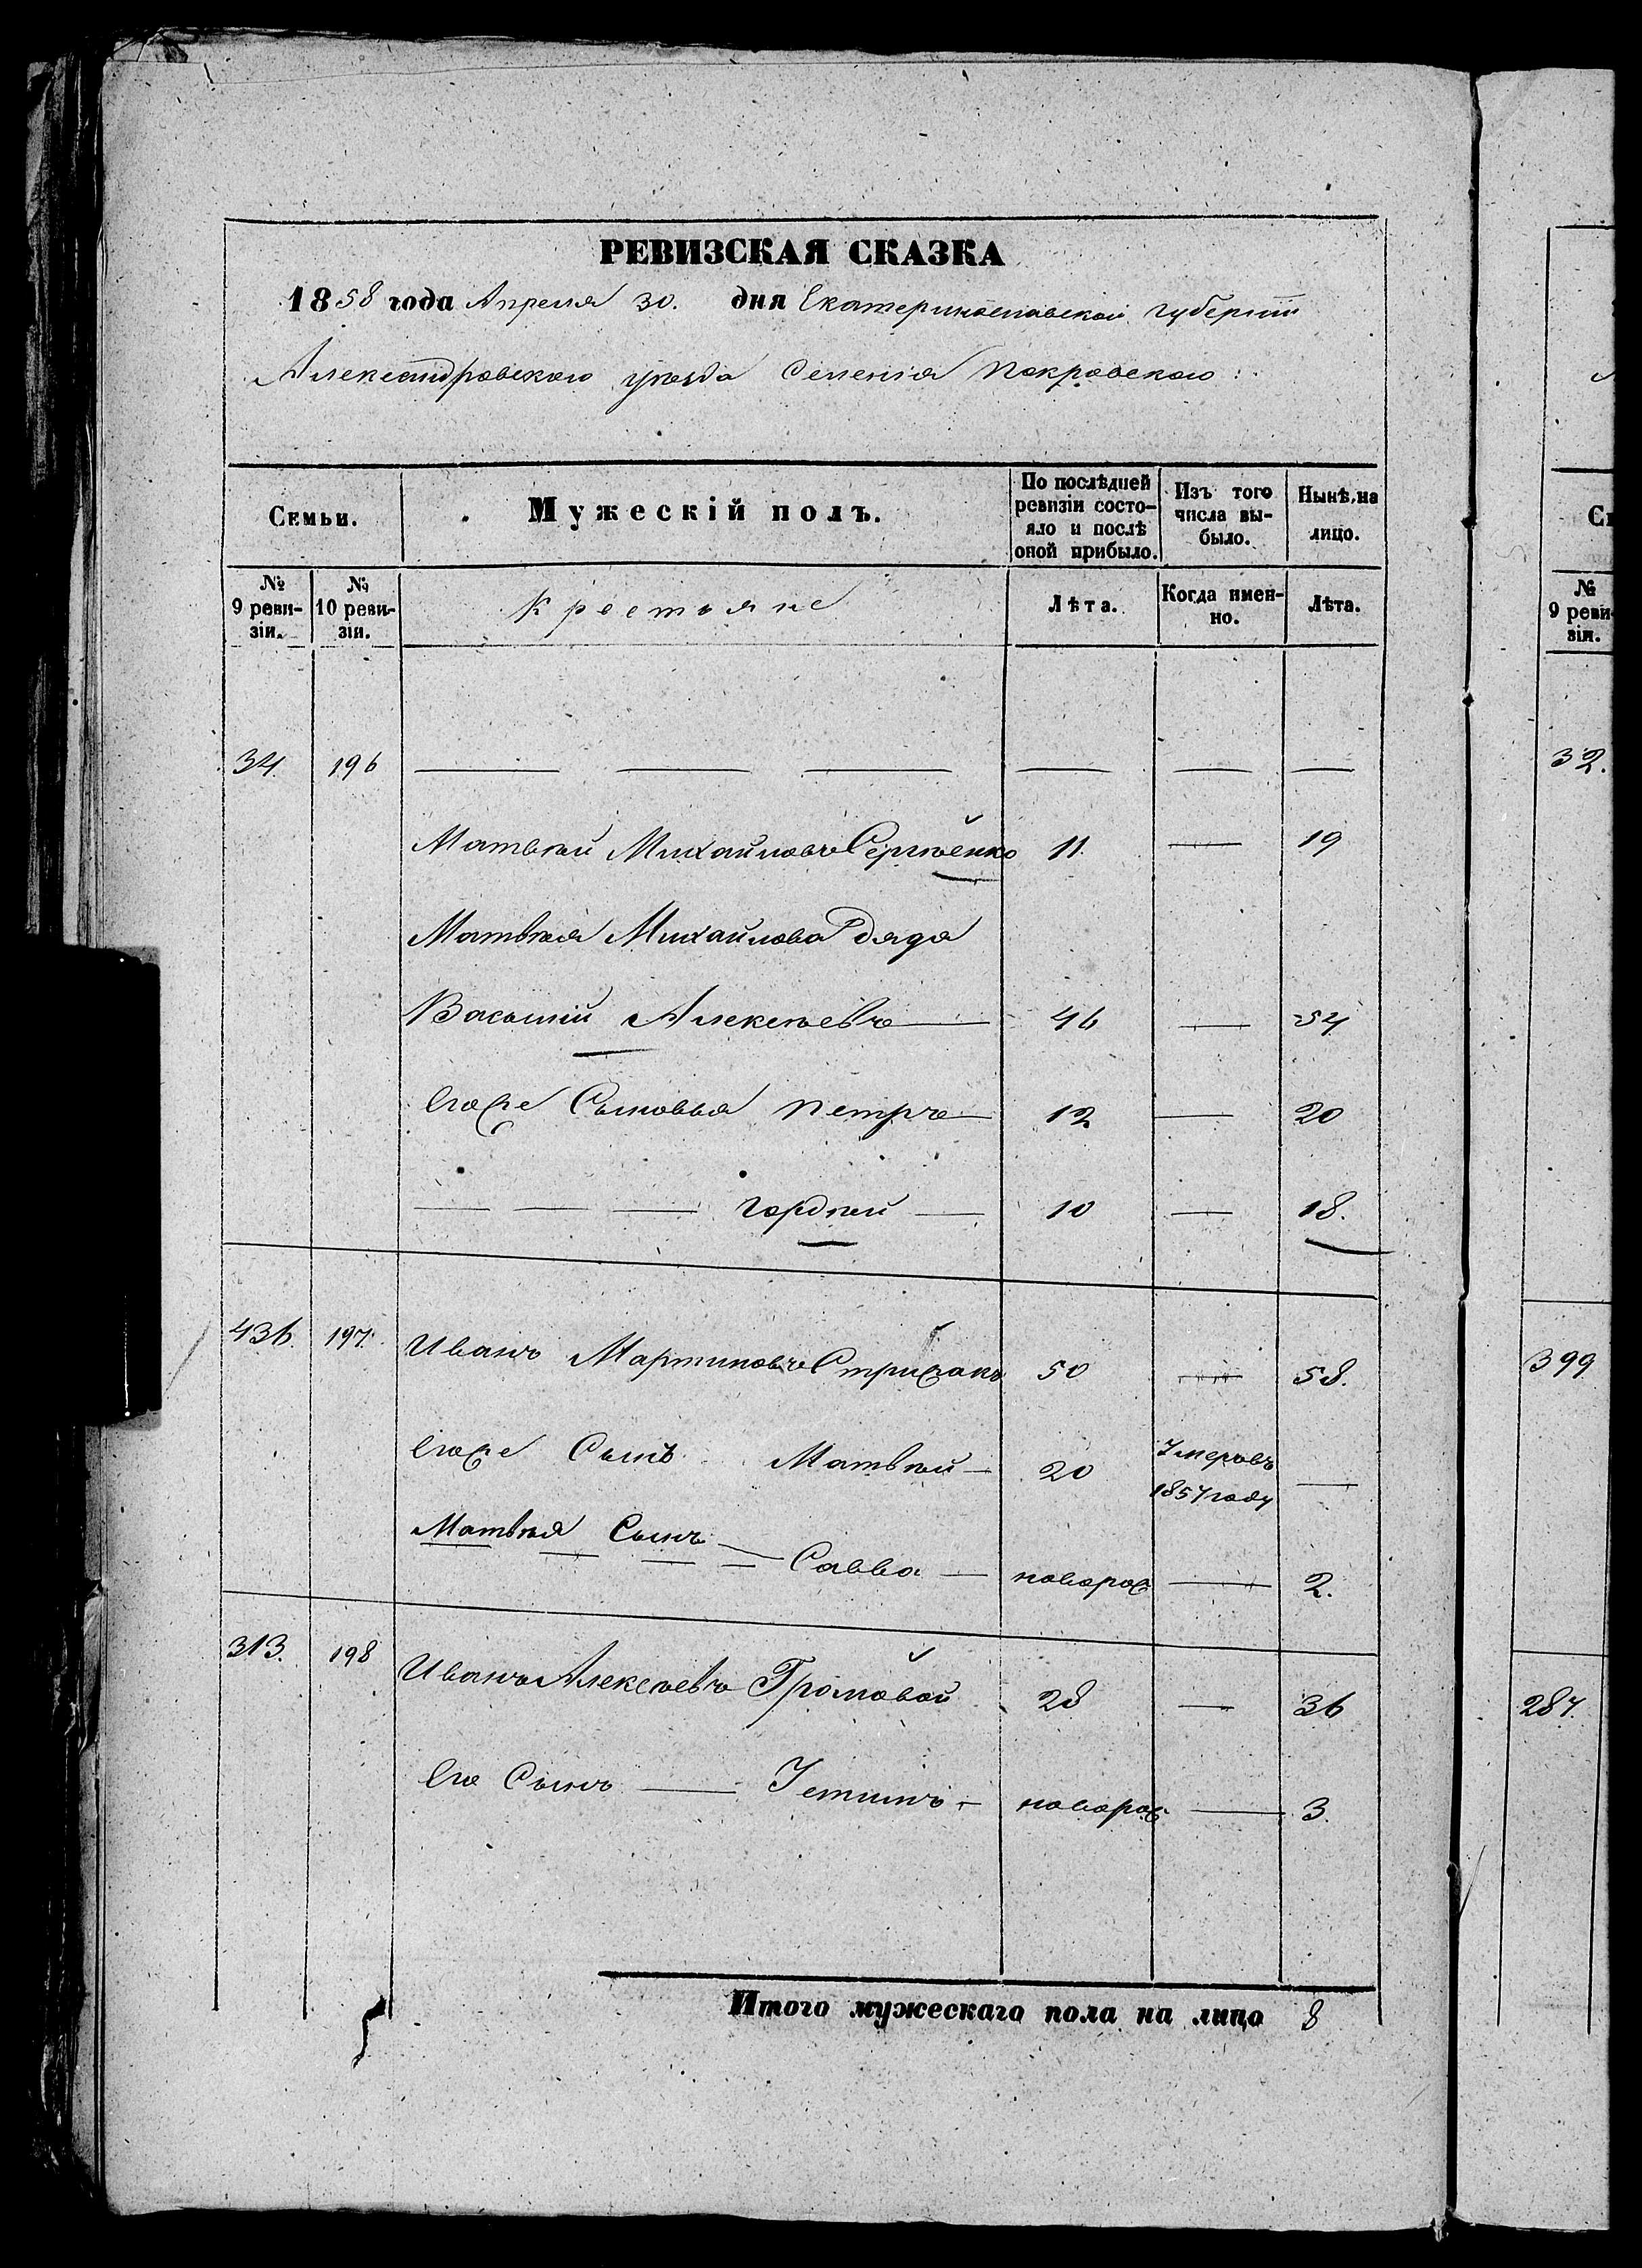 РЕВИЗСКАЯ СКАЗКА
1858 года Апреля 30. дня Екатеринославской губернiи
Александровскаго уѣзда Селенiя Покровскаго:
Семьи.
Мужескiй полъ.
По послѣдней ревизiи состояло и послѣ оной прибыло.
Изъ того числа выбыло.
Нынѣ на лицо.
№ 9 ревизiи.
№ 10 ревизiи.
Крестьяне
Лѣта.
Когда именно.
Лѣта.
34. 196 — — — — — —
Матвѣй Михайловъ Сергѣенко 11. — 19
Матвѣя Михайлова дядя
Василiй Алексѣевъ — 46 — 54
Егоже Сыновья Петръ — 12 — 20
— — — Гордѣй — 10 — 18.
436. 197. Иванъ Мартиновъ Стрижакъ 50 — 58.
Егоже Сынъ Матвѣй — 20 Умеръ въ 1857 году —
Матвѣя Сынъ — Савва — новорож — 2.
313. 198 Иванъ Алексѣевъ Громовой 28 — 36
Его Сынъ — Устинъ — новорож — 3.
Итого мужескаго пола на лицо 8
№
9 реви
зiи.
32.
399
287.